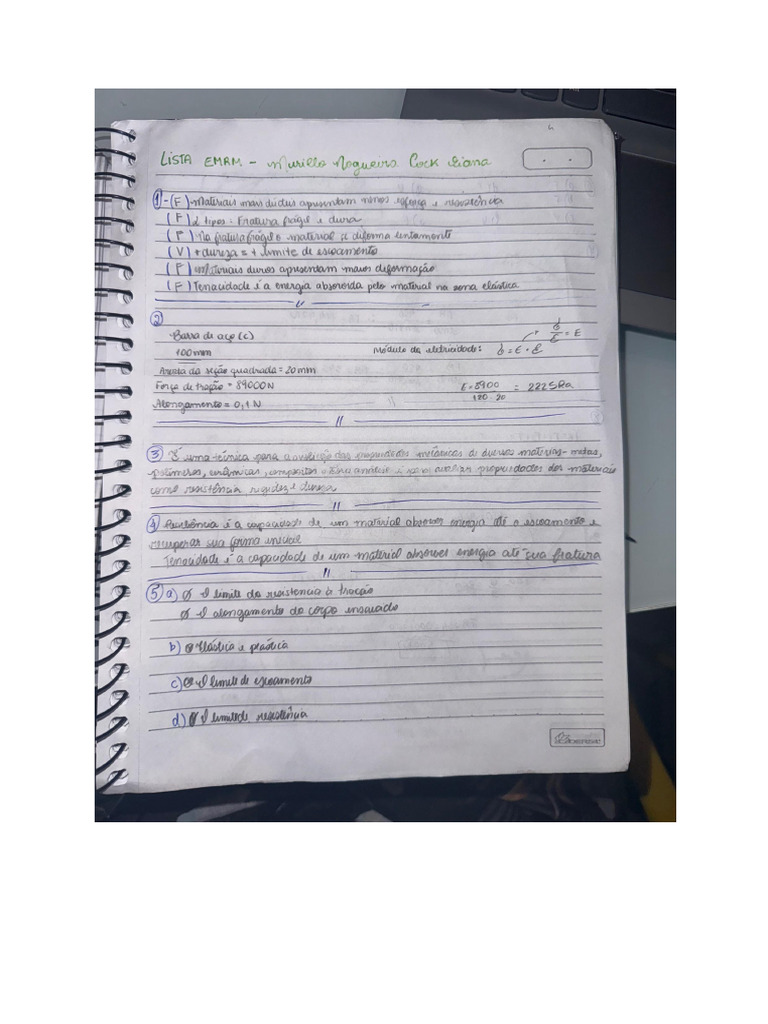 LISTA EMRM - Murillo Nogueira Cock Viana
1 - (F) Materiais mais dúcteis apresentam menos esforço e resistência
(F) 2 tipos: Fratura frágil e dura
(F) Na fratura frágil o material se deforma lentamente
(V) + dureza = + limite de escoamento
(F) Materiais duros apresentam maior deformação
(F) Tenacidade é a energia absorvida pelo material na zona elástica
2
Barra de aço (c)
100mm
Módulo de eletricidade: σ = E · ε
σ/ε = E
Aresta da seção quadrada = 20mm
Força de tração = 89000N
Alongamento = 0,1 N
= 222,5
120 · 20
3 É uma técnica para a medição das propriedades mecânicas de diversos materiais - metais,
polímeros, cerâmicas, compostos análise é para avaliar propriedades dos materiais
como resistência rigidez e dureza
4 Resiliência é a capacidade de um material absorver energia até o escoamento e
recuperar sua forma inicial
Tenacidade é a capacidade de um material absorver energia até sua fratura
5 a) O limite da resistencia à tração
O alongamento do corpo ensaiado
b) Elástica e plástica
c) O limite de escoamento
d) O limite de resistência